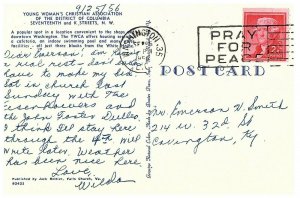 9/25/56
YOUNG WOMAN'S CHRISTIAN ASSOCIATION
OF THE DISTRICT OF COLUMBIA
SEVENTEENTH and K STREETS, N. W.
A popular spot in a location convenient to the shops
downtown Washington. The YWCA offers housing
a cafeteria, an indoor swimming pool and
facilities — all just three blocks from the White
WASHINGTON, 35
PRAY
FOR
PEACE
POST CARD
Dear Parson, Im
a real rest — dont even
have to make my dis
bot in church East
Sunday with the
Eisenhowers and
the John Foster Dulles.
I think Ill stay here
through the 4th. Mel
Write later. Weather
has been nice here
Love,
Wilda
Mrs. Emerson W Smith
214 w. 32d St
Covington, Ky
Published by Jack Mentier, Falls Church, Va.